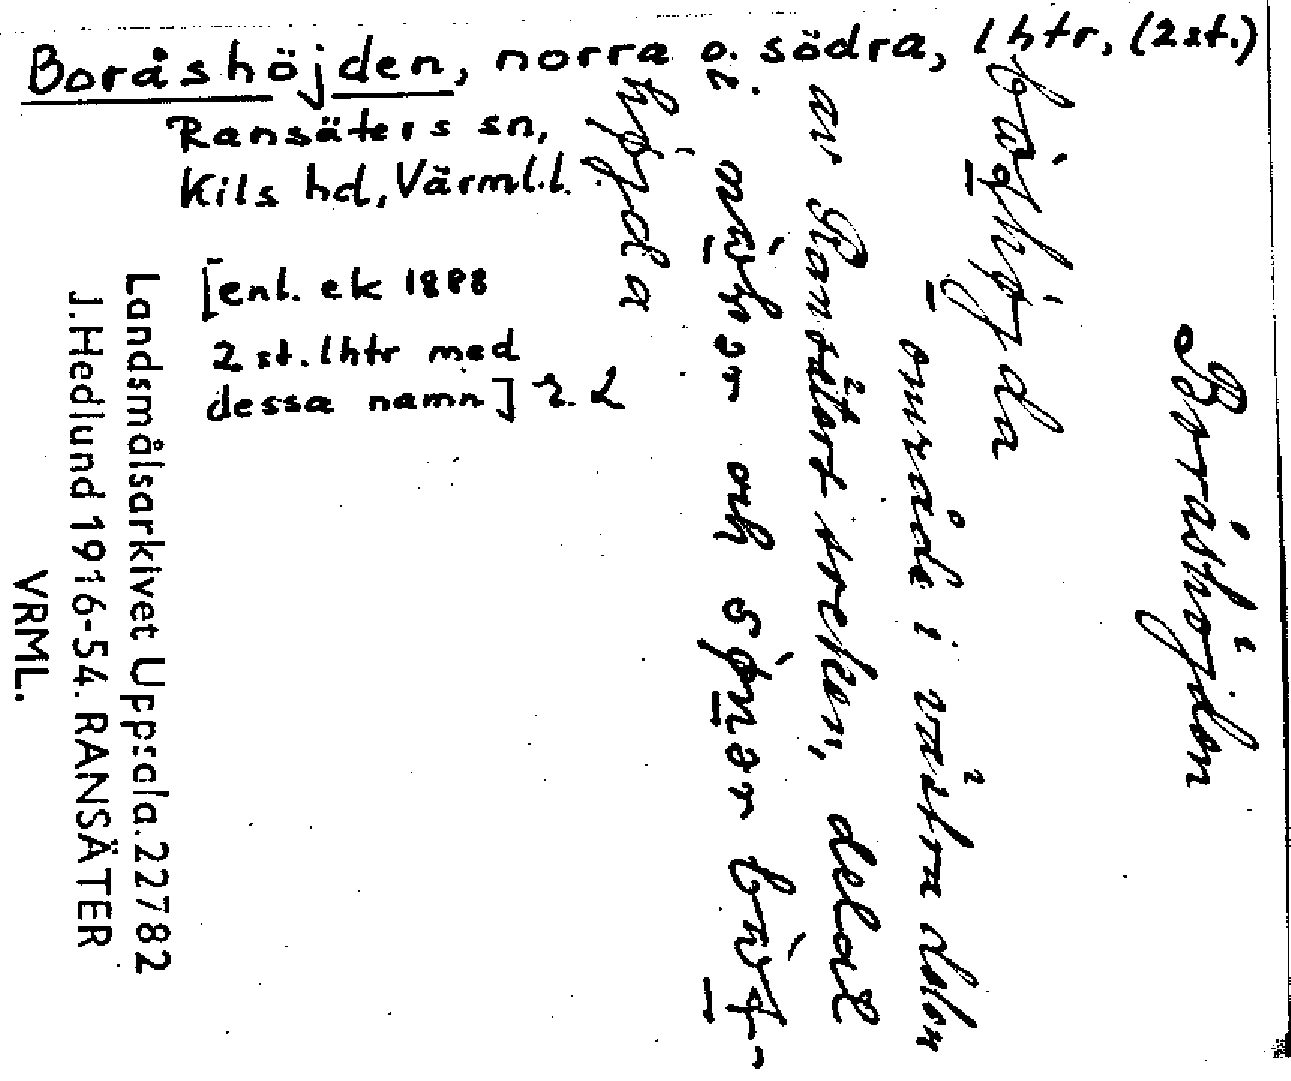 Boråshöjden, norra o. södra, lhtr, (2 st.)
Ransäters sn,
Kils hd, Värml.l.
[enl. ek 1888
2 st. lhtr med
dessa namn]
Boråshöjden
område i västra delen
av Ransäterst socken, delat
i och
höjda
Landsmålsarkivet Uppsala. 22782
J. Hedlund 1916-54. RANSÄTER
VRML.